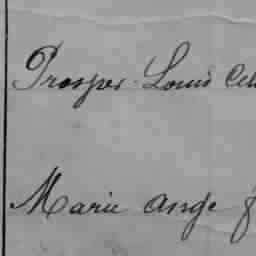 Prosper Louis
Marie Ange